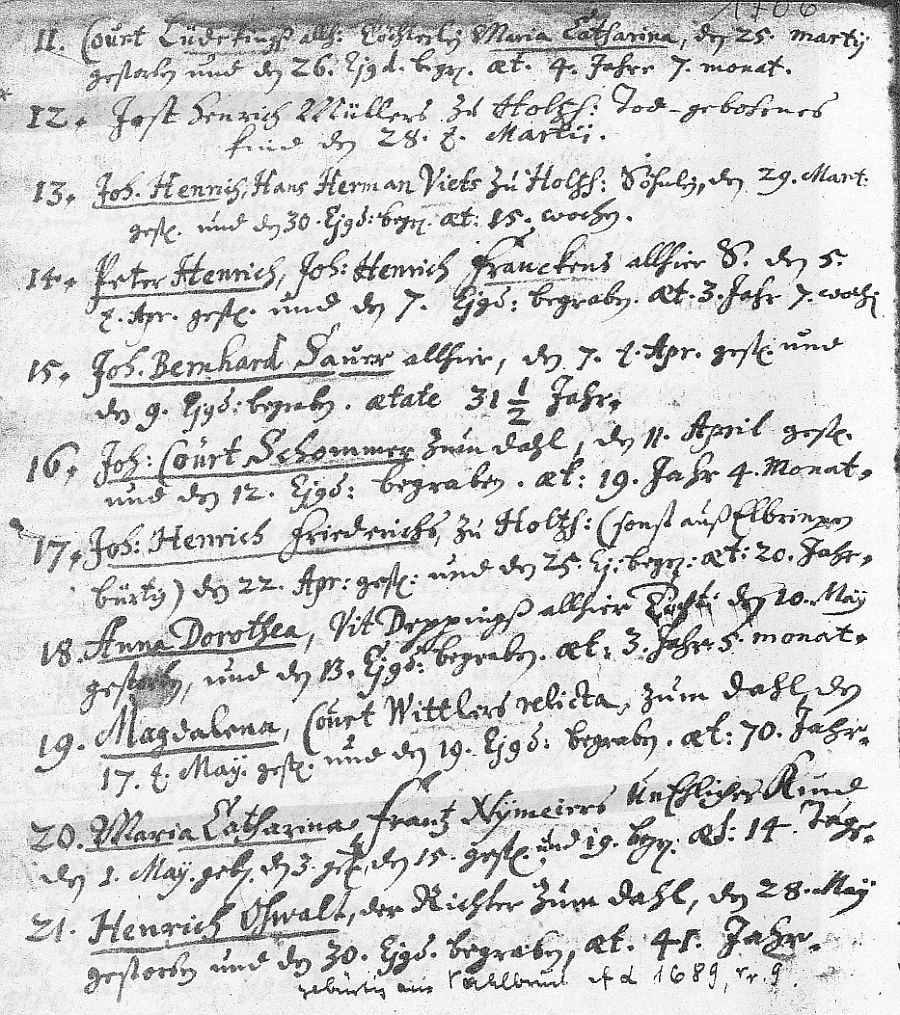 1706
11. Court Lüdekings allh: Töchterlin Maria Catharina, den 25. martij
gestorben und den 26. Ejgd. begr. æt. 4. Jahr 7. monat.
12. Jost Henrich Müllers zu Holtzh: Tod-gebohrnes
kind den 28. Martij.
13. Joh. Henrich, Hans Herman Viets zu Holtzh: Söhnlin, den 29. Mart:
gest. und den 30. Ejgd: begr. æt: 15. wochen.
14. Peter Henrich, Joh: Henrich Franckens allhier S. den 5.
Apr. gest. und den 7. Ejgd: begraben. æt. 3. Jahr 7. woch:
15. Joh. Bernhard Sauer allhier, den 7. Apr. gest. und
den 9. Ejgd: begraben. ætate 31 1/2 Jahr.
16. Joh: Court Schommer zum dahl, den 11. April gest.
und den 12. Ejgd: begraben. æt: 19. Jahr 4. Monat.
17. Joh: Henrich Friederichs, zu Holtzh: (sonst auß Elbrinxen
bürtig) den 22. Apr: gest: und den 25. Ej. begr: æt: 20. Jahr.
18. Anna Dorothea, Vit Deppings allhier Tocht: den 10. May
gestorben, und den 13. Ejgd: begraben. æt: 3. Jahr 5 monat.
19. Magdalena, Court Wittlers relicta, zum dahl, den
17. May. gest. und den 19. Ejgd: begraben. æt: 70. Jahr.
20. Maria Catharina, Frantz Nymeiers Unehliches Kind
den 1. May. geb. den 3. get. den 15. gest. und 19. begr. æt: 14. Tage.
21. Henrich Oswalt, der Richter zum dahl, den 28. May
gestorben und den 30. Ejgd. begraben, æt. 45. Jahr.
gebürtig aus 1689, nr. 9.